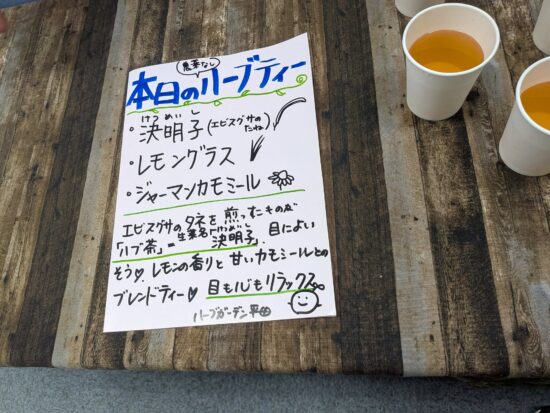 農薬なし
本日のハーブティー
・決明子(エビスグサのたね)
けつめいし
・レモングラス
・ジャーマンカモミール
エビスグサのタネを煎ったものが
「ハブ茶」=生薬名「決明子」。目によい
けつめいし
そう♡。レモンの香りと甘いカモミールとの
ブレンドティー♡ 目も心もリラックス。
ハーブガーデン平田